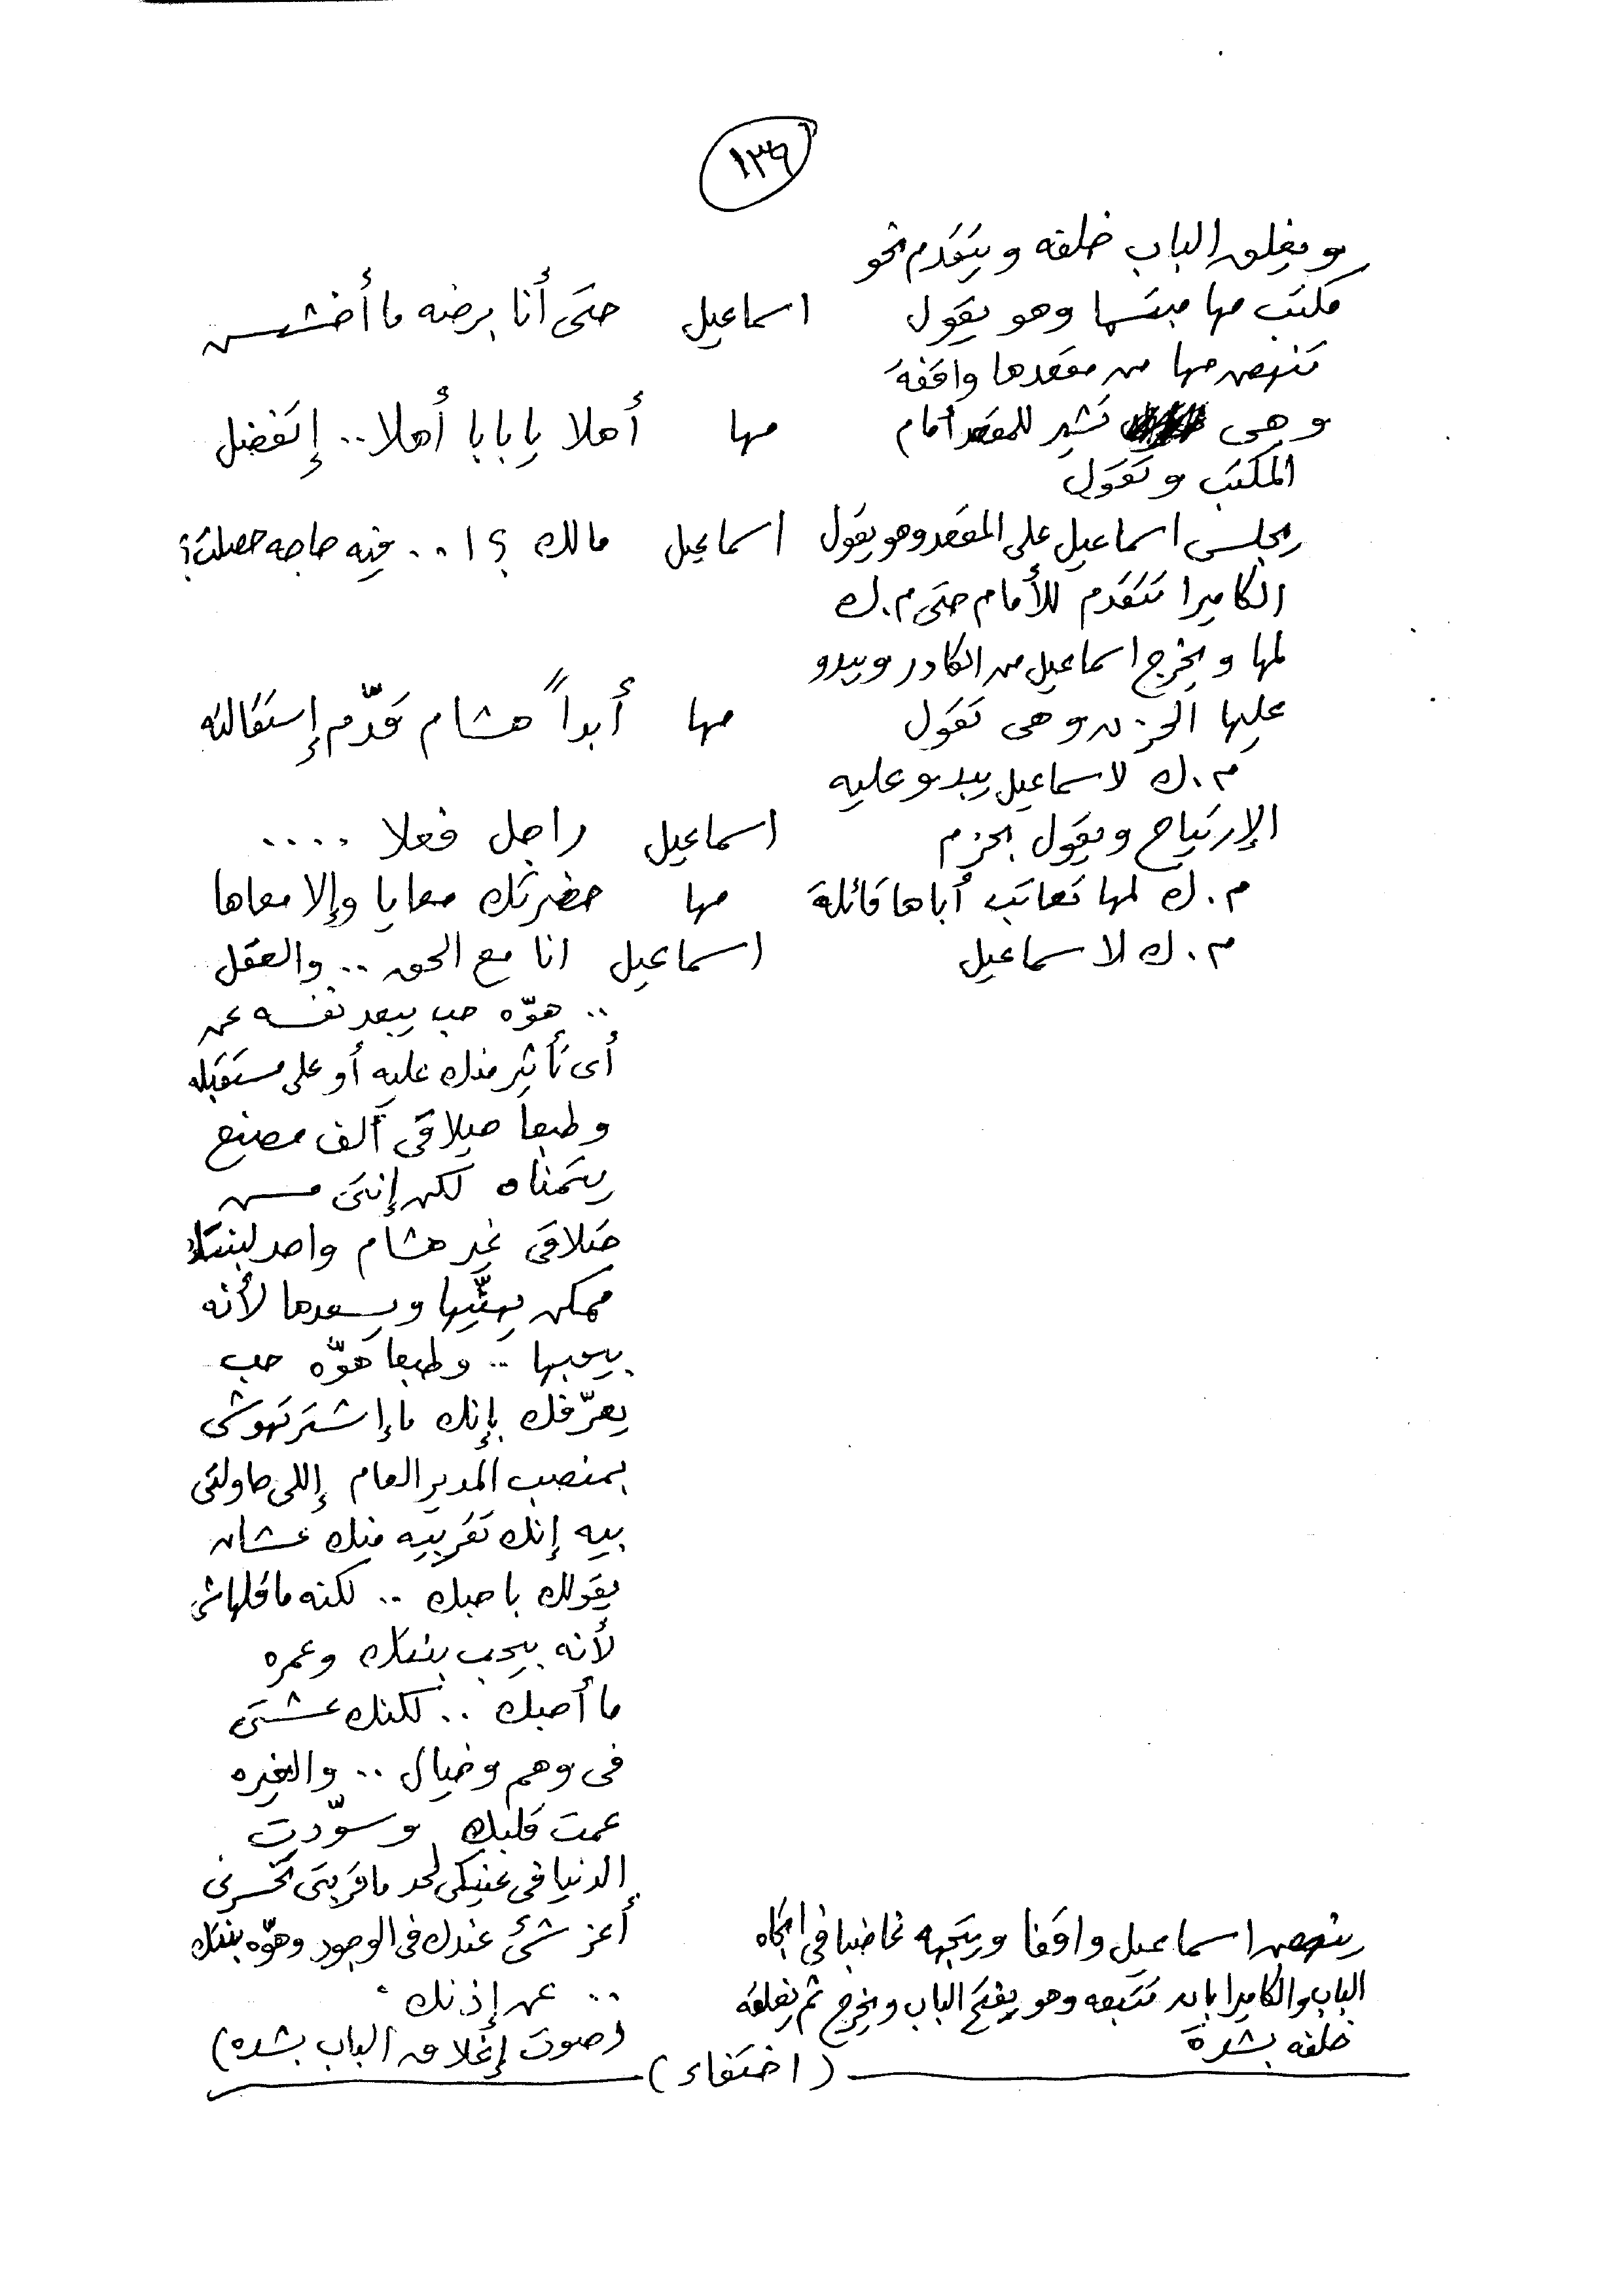 ١٣٩
ويغلق الباب خلفه ويتقدم نحو
مكتب مها مبتسما وهو يقول اسماعيل حتى أنا برضه ما أخشش
تنهض مها من مقعدها واقفة
وهى تشير للمقعد أمام مها أهلا يا بابا أهلا .. إتفضل
المكتب وتقول
يجلس اسماعيل على المقعد وهو يقول اسماعيل مالك ؟! .. فيه حاجه حصلت ؟
الكاميرا تتقدم للأمام حتى م . ك
لمها ويخرج اسماعيل من الكادر ويبدو
عليها الحزن وهى تقول مها أبداً هشام قدّم إستقالته
م . ك لاسماعيل يبدو عليه
الإرتياح ويقول بحزم اسماعيل راجل فعلا ....
م . ك لمها تعاتب أباها قائلة مها حضرتك معايا وإلا معاها
م . ك لاسماعيل اسماعيل انا مع الحق .. والعقل
.. هوّه حب يبعد نفسه عن
أى تأثير منك عليه أو على مستقبله
وطبعاً حيلاقى ألف مصنع
يتمناه لكن إنتى مش
حتلاقى غير هشام واحد لبنتك
ممكن يهنّيها ويسعدها لأنه
بيحبها .. وطبعا هوّه حب
يعرّفك بإنك ما إشترتهوش
بمنصب المدير العام إللى حاولتى
بيه إنك تقربيه منك عشان
يقولك باحبك .. لكنه ماقلهاش
لأنه بيحب بنتك وعمره
ما أحبك .. لكنك عشتى
فى وهم وخيال .. والغيره
عمت قلبك وسوّدت
الدنيا فى عنيكى لحد ماقربتى تخسرى
ينهض اسماعيل واقفا ويتجه غاضبا فى اتجاه أعز شئ عندك فى الوجود وهوّه بنتك
الباب والكاميرا بان تتبعه وهو يفتح الباب ويخرج ثم يغلقه .. عن إذنك .
خلفه بشدة (صوت إغلاق الباب بشده)
( اختفاء )